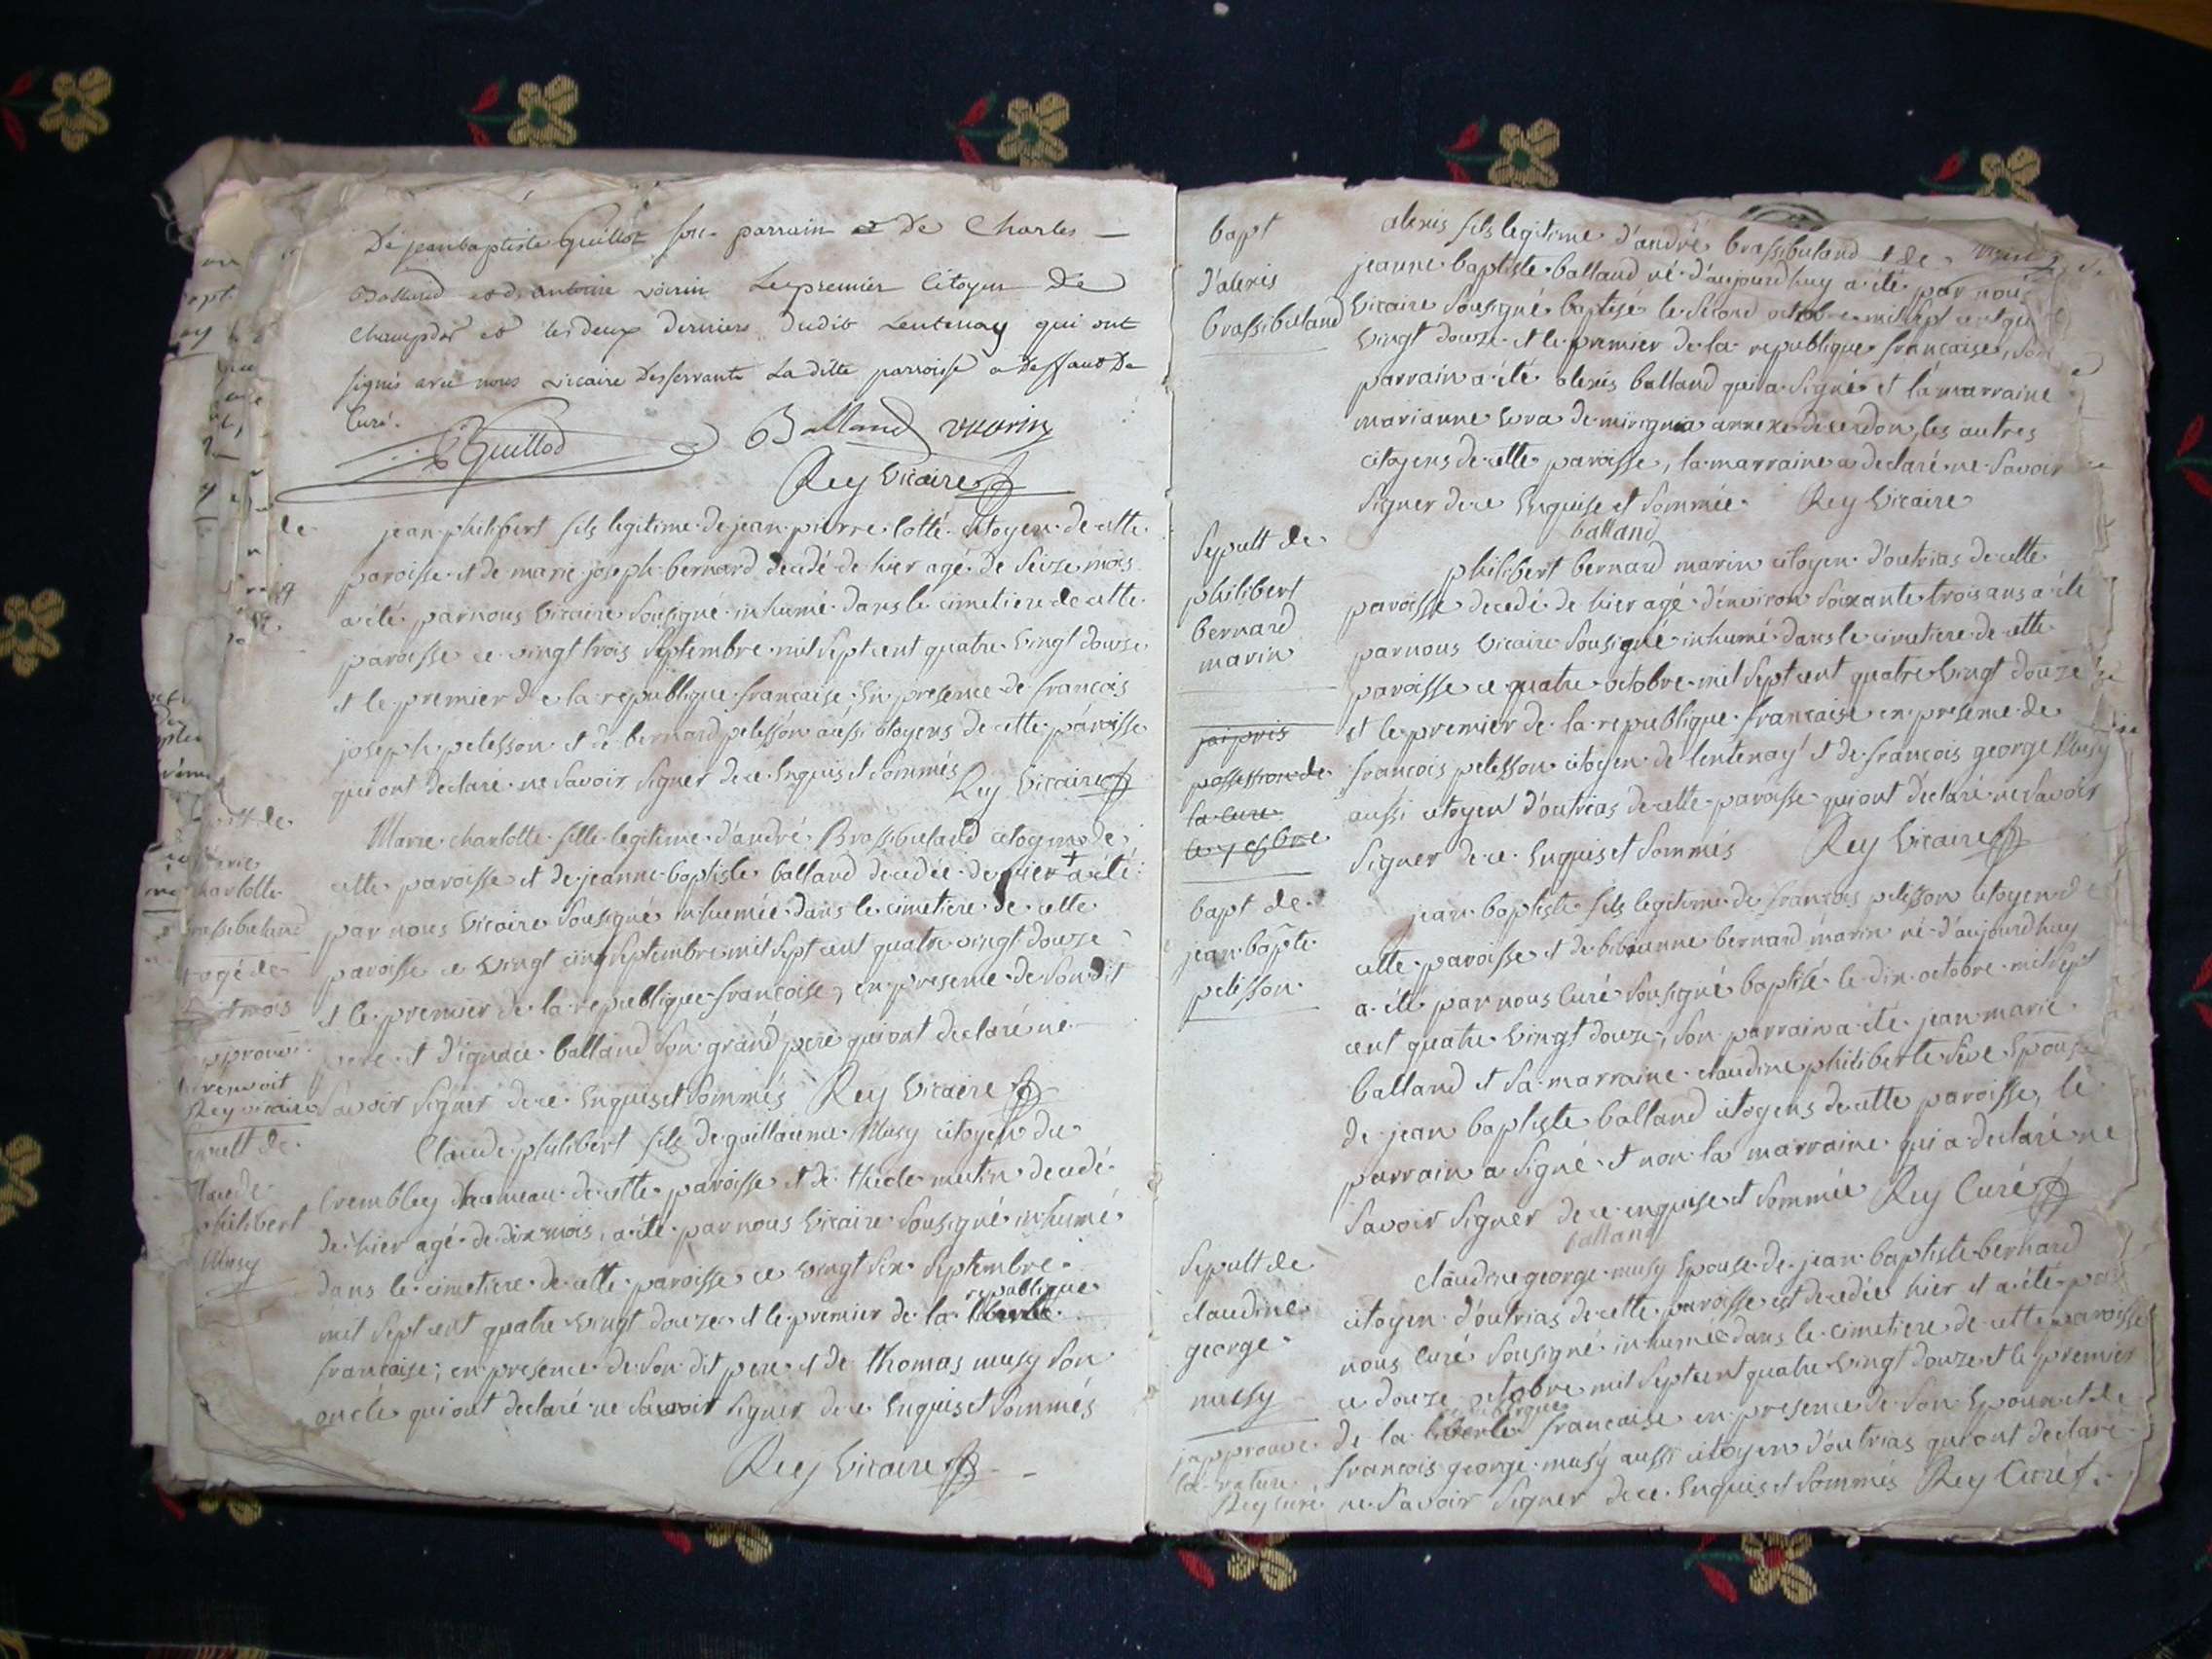 De jean baptiste Guillot son parrain et de Charles
Balland et d'antoine vuarin Le premier Citoyen De
Champdor et les deux derniers dudit Lentenay qui ont
signés avec nous vicaire desservant La ditte parroisse a deffaut De
Curé.
Guillod Balland vuarin
Rey Vicaire
de
jean philibert fils legitime de jean pierre cotte citoyen de cette
paroisse et de marie joseph bernard decedé de hier agé de seize mois
a été par nous vicaire sousigné inhumé dans le cimetiere de cette
paroisse ce vingt trois septembre mil sept cent quatre vingt douze
et le premier de la republique francaise, en presence de françois
joseph pelisson et de bernard pelisson aussi citoyens de cette paroisse
qui ont declaré ne savoir signer de ce enquis et sommés Rey Vicaire
Marie charlotte fille legitime d'andré Brassibuland citoyen de
cette paroisse et de jeanne baptiste balland decedée de hier + a été
par nous vicaire sousigné inhumée dans le cimetiere de cette
paroisse ce vingt cinq septembre mil sept cent quatre vingt douze
et le premier de la republique françoise, en presence de son dit
pere et d'ignace balland son grand pere qui ont declaré ne
savoir signer de ce enquis et sommés Rey Vicaire
charlotte
agé de
mois
renvoit
Rey vicaire
Claude philibert fils de guillaume Musy citoyen du
Crembley hameau de cette paroisse et de thecle mutin decedé
de hier agé de dix mois, a été par nous vicaire sousigné inhumé
dans le cimetiere de cette paroisse ce vingt six septembre
republique
mil sept cent quatre vingt douze et le premier de la liberte
francaise; en presence de son dit pere et de thomas musy son
oncle qui ont declaré ne savoir signer de ce enquis et sommés
Rey Vicaire
philibert
Musy
bapt
d'alexis
brassibuland
alexis fils legitime d'andré brassibuland et de
jeanne baptiste balland né d'aujourd'huy a été par nous
vicaire sousigné baptisé le second octobre mil sept cent quatre
vingt douze et le premier de la republique francaise, son
parrain a été alexis balland qui a signé et la marraine
marianne de annexe de cerdon, les autres
citoyens de cette paroisse, la marraine a declaré ne savoir
signer de ce enquise et sommée. Rey Vicaire
balland
sepult de
philibert
bernard
marin
philibert bernard marin citoyen d'outrias de cette
paroisse decedé de hier agé d'environ soixante trois ans a été
par nous vicaire sousigné inhumé dans le cimetiere de cette
paroisse ce quatre octobre mil sept cent quatre vingt douze
et le premier de la republique francaise en presence de
françois pelisson citoyen de lentenay et de françois george Musy
aussi citoyen d'outrias de cette paroisse qui ont declaré ne savoir
signer de ce enquis et sommés Rey Vicaire
jai pris
possession de
la cure
le 7 8bre
bapt de
jean bapte
pelisson
jean baptiste fils legitime de françois pelisson citoyen de
cette paroisse et de bernard marin né d'aujourd'huy
a été par nous Curé sousigné baptisé le dix octobre mil sept
cent quatre vingt douze, son parrain a été jean marie
balland et sa marraine claudine philiberte Seve Epouse
de jean baptiste balland citoyens de cette paroisse, le
parrain a signé et non la marraine qui a declaré ne
savoir signer de ce enquise et sommée Rey Curé
balland
sepult de
claudine
george
musy
claudine george musy Epouse de jean baptiste bernard
citoyen d'outrias de cette paroisse est decedée hier et a été par
nous Curé sousigné inhumée dans le cimetiere de cette paroisse
ce douze octobre mil sept cent quatre vingt douze et le premier
republique
de la liberte francaise en presence de son Epoux et de
françois george musy aussi citoyen d'outrias qui ont declaré
ne savoir signer de ce enquis et sommés Rey Curé
japprouve
la rature
Rey Curé